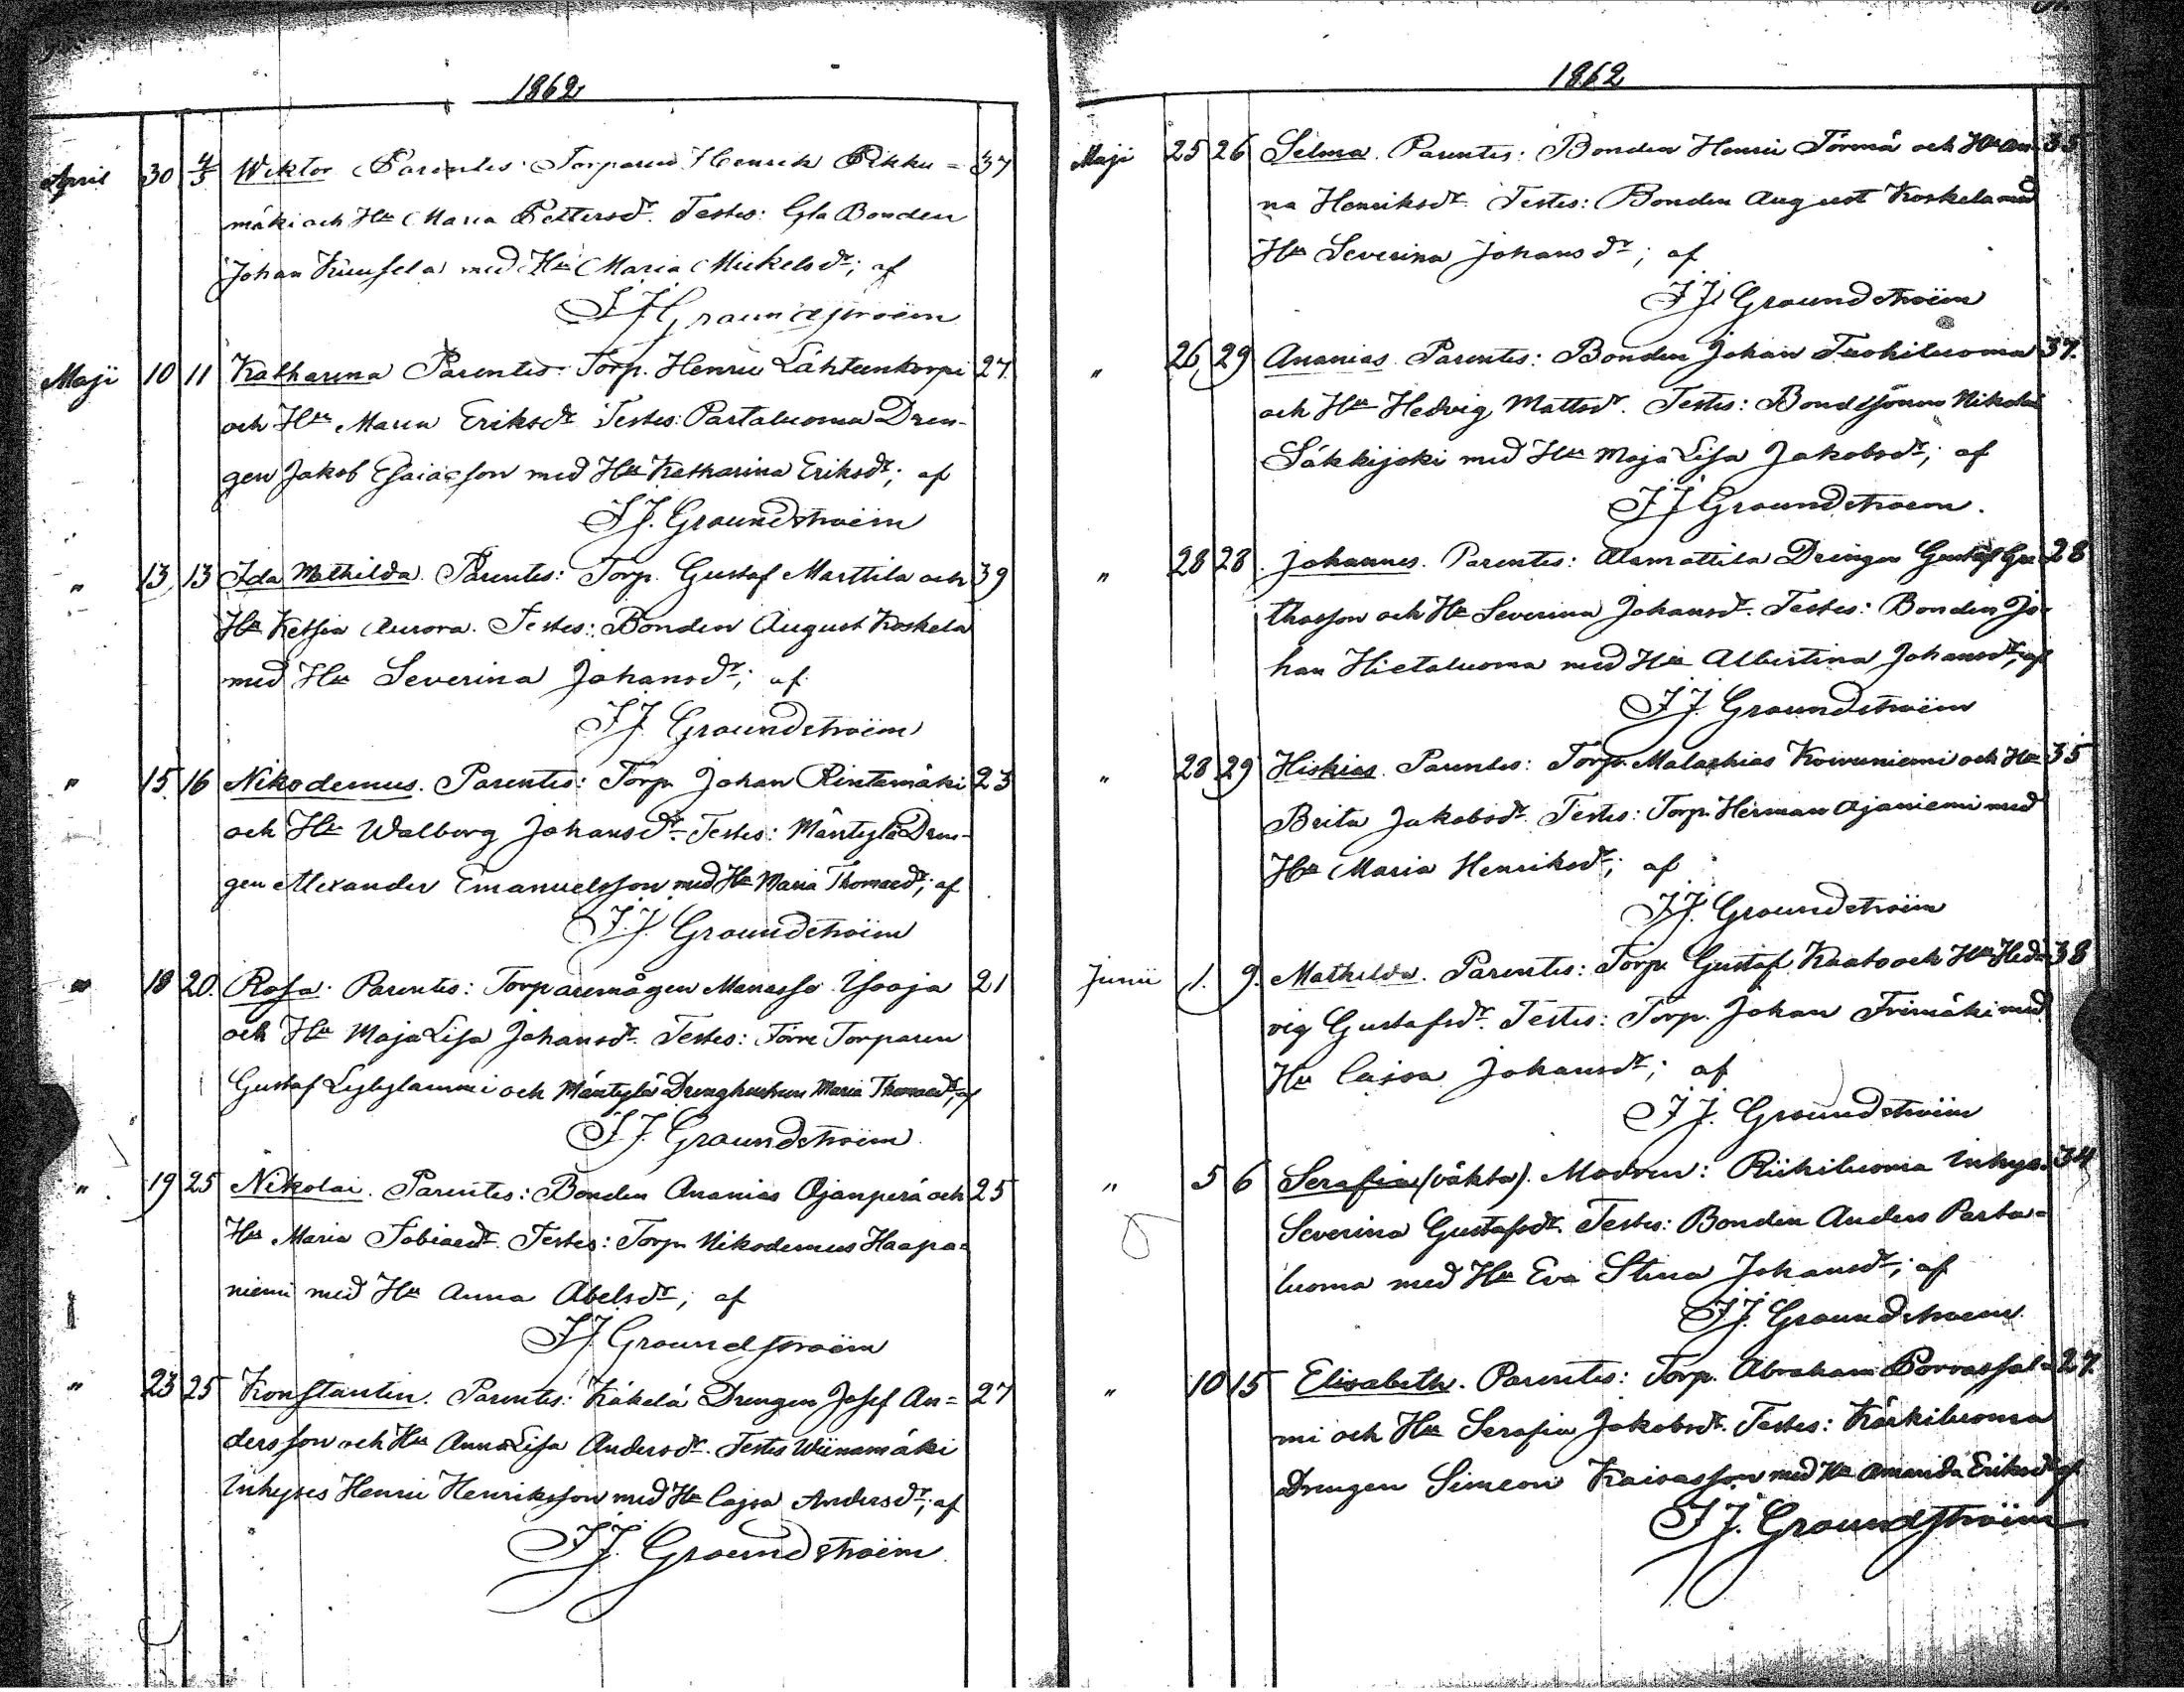 1862
April 30 4/5 Wiktor Parentes: Torparen Henrik Pikku= 37
mäki och Hu Maria Pettersdr. Testes: Gla Bonden
Johan Kuusela med Hu Maria Mickelsdr; af
F.J. Groundstroëm
Maji 10 11 Katharina Parentes: Torp. Henric Lähteenkorpi 27.
och Hu Maria Eriksdr. Testes: Partaluoma Dren-
gen Jakob Esaiasson med Hu Katharina Eriksdr; af
F.J. Groundstroëm
" 13 13 Ida Mathilda. Parentes: Torp. Gustaf Marttila och 39
Hu Ketsia Aurora. Testes: Bonden August Koskela
med Hu Severina Johansdr; af
F.J. Groundstroëm
" 15 16 Nikodemus. Parentes: Torp. Johan Rintamäki 23
och Hu Walborg Johansdr. Testes: Mäntylä Dren-
gen Alexander Emanuelsson med Hu Maria Thomaedr; af
F.J. Groundstroëm
" 18 20. Rosa. Parentes: Torparemågen Manasse Ysoaja 21
och Hu Maja Lisa Johansdr. Testes: Förre Torparen
Gustaf Lylylammi och Mäntylä Drenghustrun Maria Thomaedr; af
F.J. Groundstroëm
" 19 25 Nikolai. Parentes: Bonden Ananias Ojanperä och 25
Hu Maria Tobiaedr. Testes: Torp. Nikodemus Haapa=
niemi med Hu Anna Abelsdr; af
F.J. Groundstroëm
" 23 25 Konstantin. Parentes: Käkelä Drengen Josef An= 27
dersson och Hu Anna Lisa Andersdr. Testes Wiinamäki
Inhyses Henric Henriksson med Hu Cajsa Andersdr; af
F.J. Groundstroëm
1862
Maji 25 26 Selma. Parentes: Bonden Henric Törmä och Hu An- 35
na Henriksdr. Testes: Bonden August Koskela med
Hu Severina Johansdr; af
F.J. Groundstroëm
" 26 29 Ananias. Parentes: Bonden Johan Tuohiluoma 37.
och Hu Hedvig Mattsdr. Testes: Bondesonen Nikolai
Säkkijoki med Hu Maja Lisa Jakobsdr; af
F.J. Groundstroëm.
" 28 28 Johannes. Parentes: Alamattila Drengen Gustaf 28
och Hu Severina Johansdr. Testes: Bonden Jo-
han Hietaluoma med Hu Albertina Johansdr; af
F.J. Groundstroëm
" 28 29 Hiskias. Parentes: Torp. Malachias Koivuniemi och Hu 35
Brita Jakobsdr. Testes: Torp. Herman Ojaniemi med
Hu Maria Henriksdr; af
F.J. Groundstroëm
Junii 1. 9. Mathilda. Parentes: Torp. Gustaf Kaato och Hu Hed- 38
vig Gustafsdr. Testes: Torp. Johan Frimäki med
Hu Caisa Johansdr; af
F.J. Groundstroëm
" 5 6 Serafia (oäkta). Modren: Riihiluoma Inhys. 34
Severina Gustafsdr. Testes: Bonden Anders Parta=
luoma med Hu Eva Stina Johansdr; af
F.J. Groundstroëm
" 10 15 Elisabeth. Parentes: Torp. Abraham Porrassal= 27.
mi och Hu Serafia Jakobsdr. Testes: Kärkiluoma
Drengen Simeon Kaisasson med Hu Amanda Eriksdr af
F.J. Groundstroëm